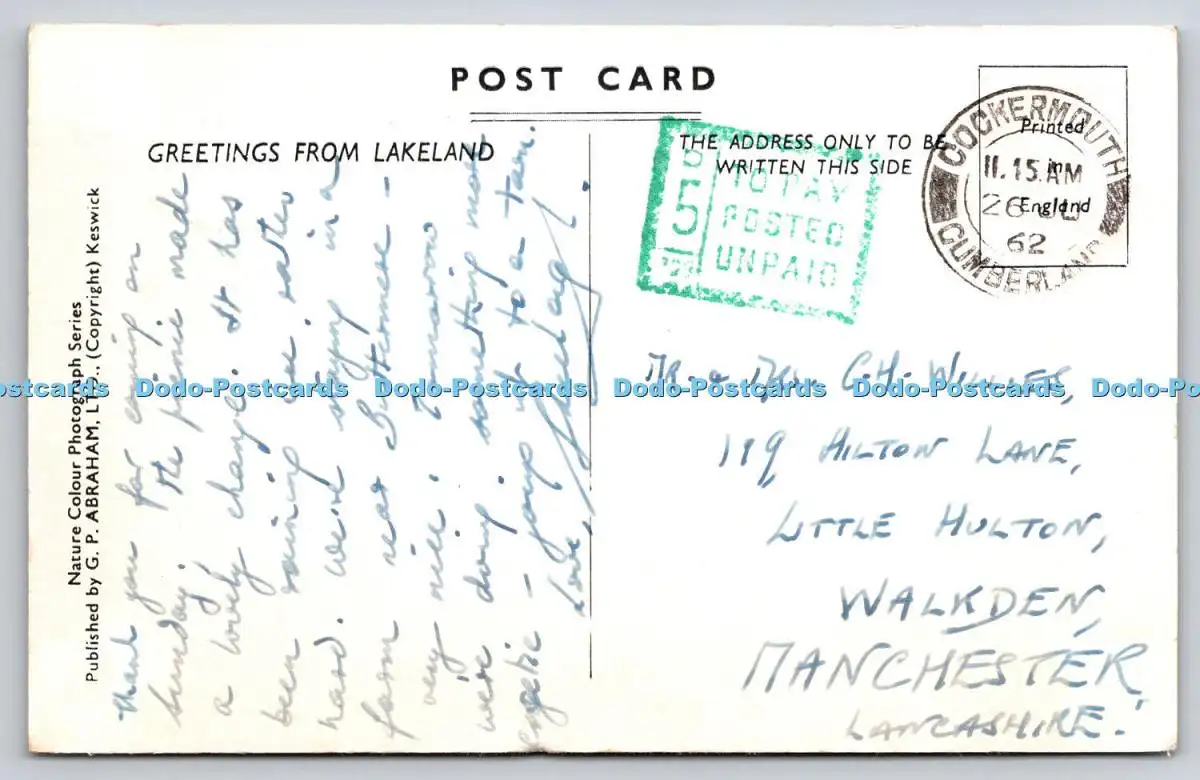 POST CARD
GREETINGS FROM LAKELAND
THE ADDRESS ONLY TO BE
WRITTEN THIS SIDE
Printed
in
England
COCKERMOUTH
11.15 AM
26
62
CUMBERLAND
5
TO PAY
POSTED
UNPAID
Nature Colour Photograph Series
Published by G. P. ABRAHAM, LTD., (Copyright) Keswick
Thank you for coming on
Sunday. The picnic made
a lovely change. It has
been raining here rather
hard. We're staying in a
farm near Buttermere -
very nice. Tomorrow
we're doing something more
energetic - going up to a tarn.
Love,
MR. & MRS. C.H.
119 HILTON LANE,
LITTLE HULTON,
WALKDEN,
MANCHESTER
LANCASHIRE.
Dodo-Postcards Dodo-Postcards Dodo-Postcards Dodo-Postcards